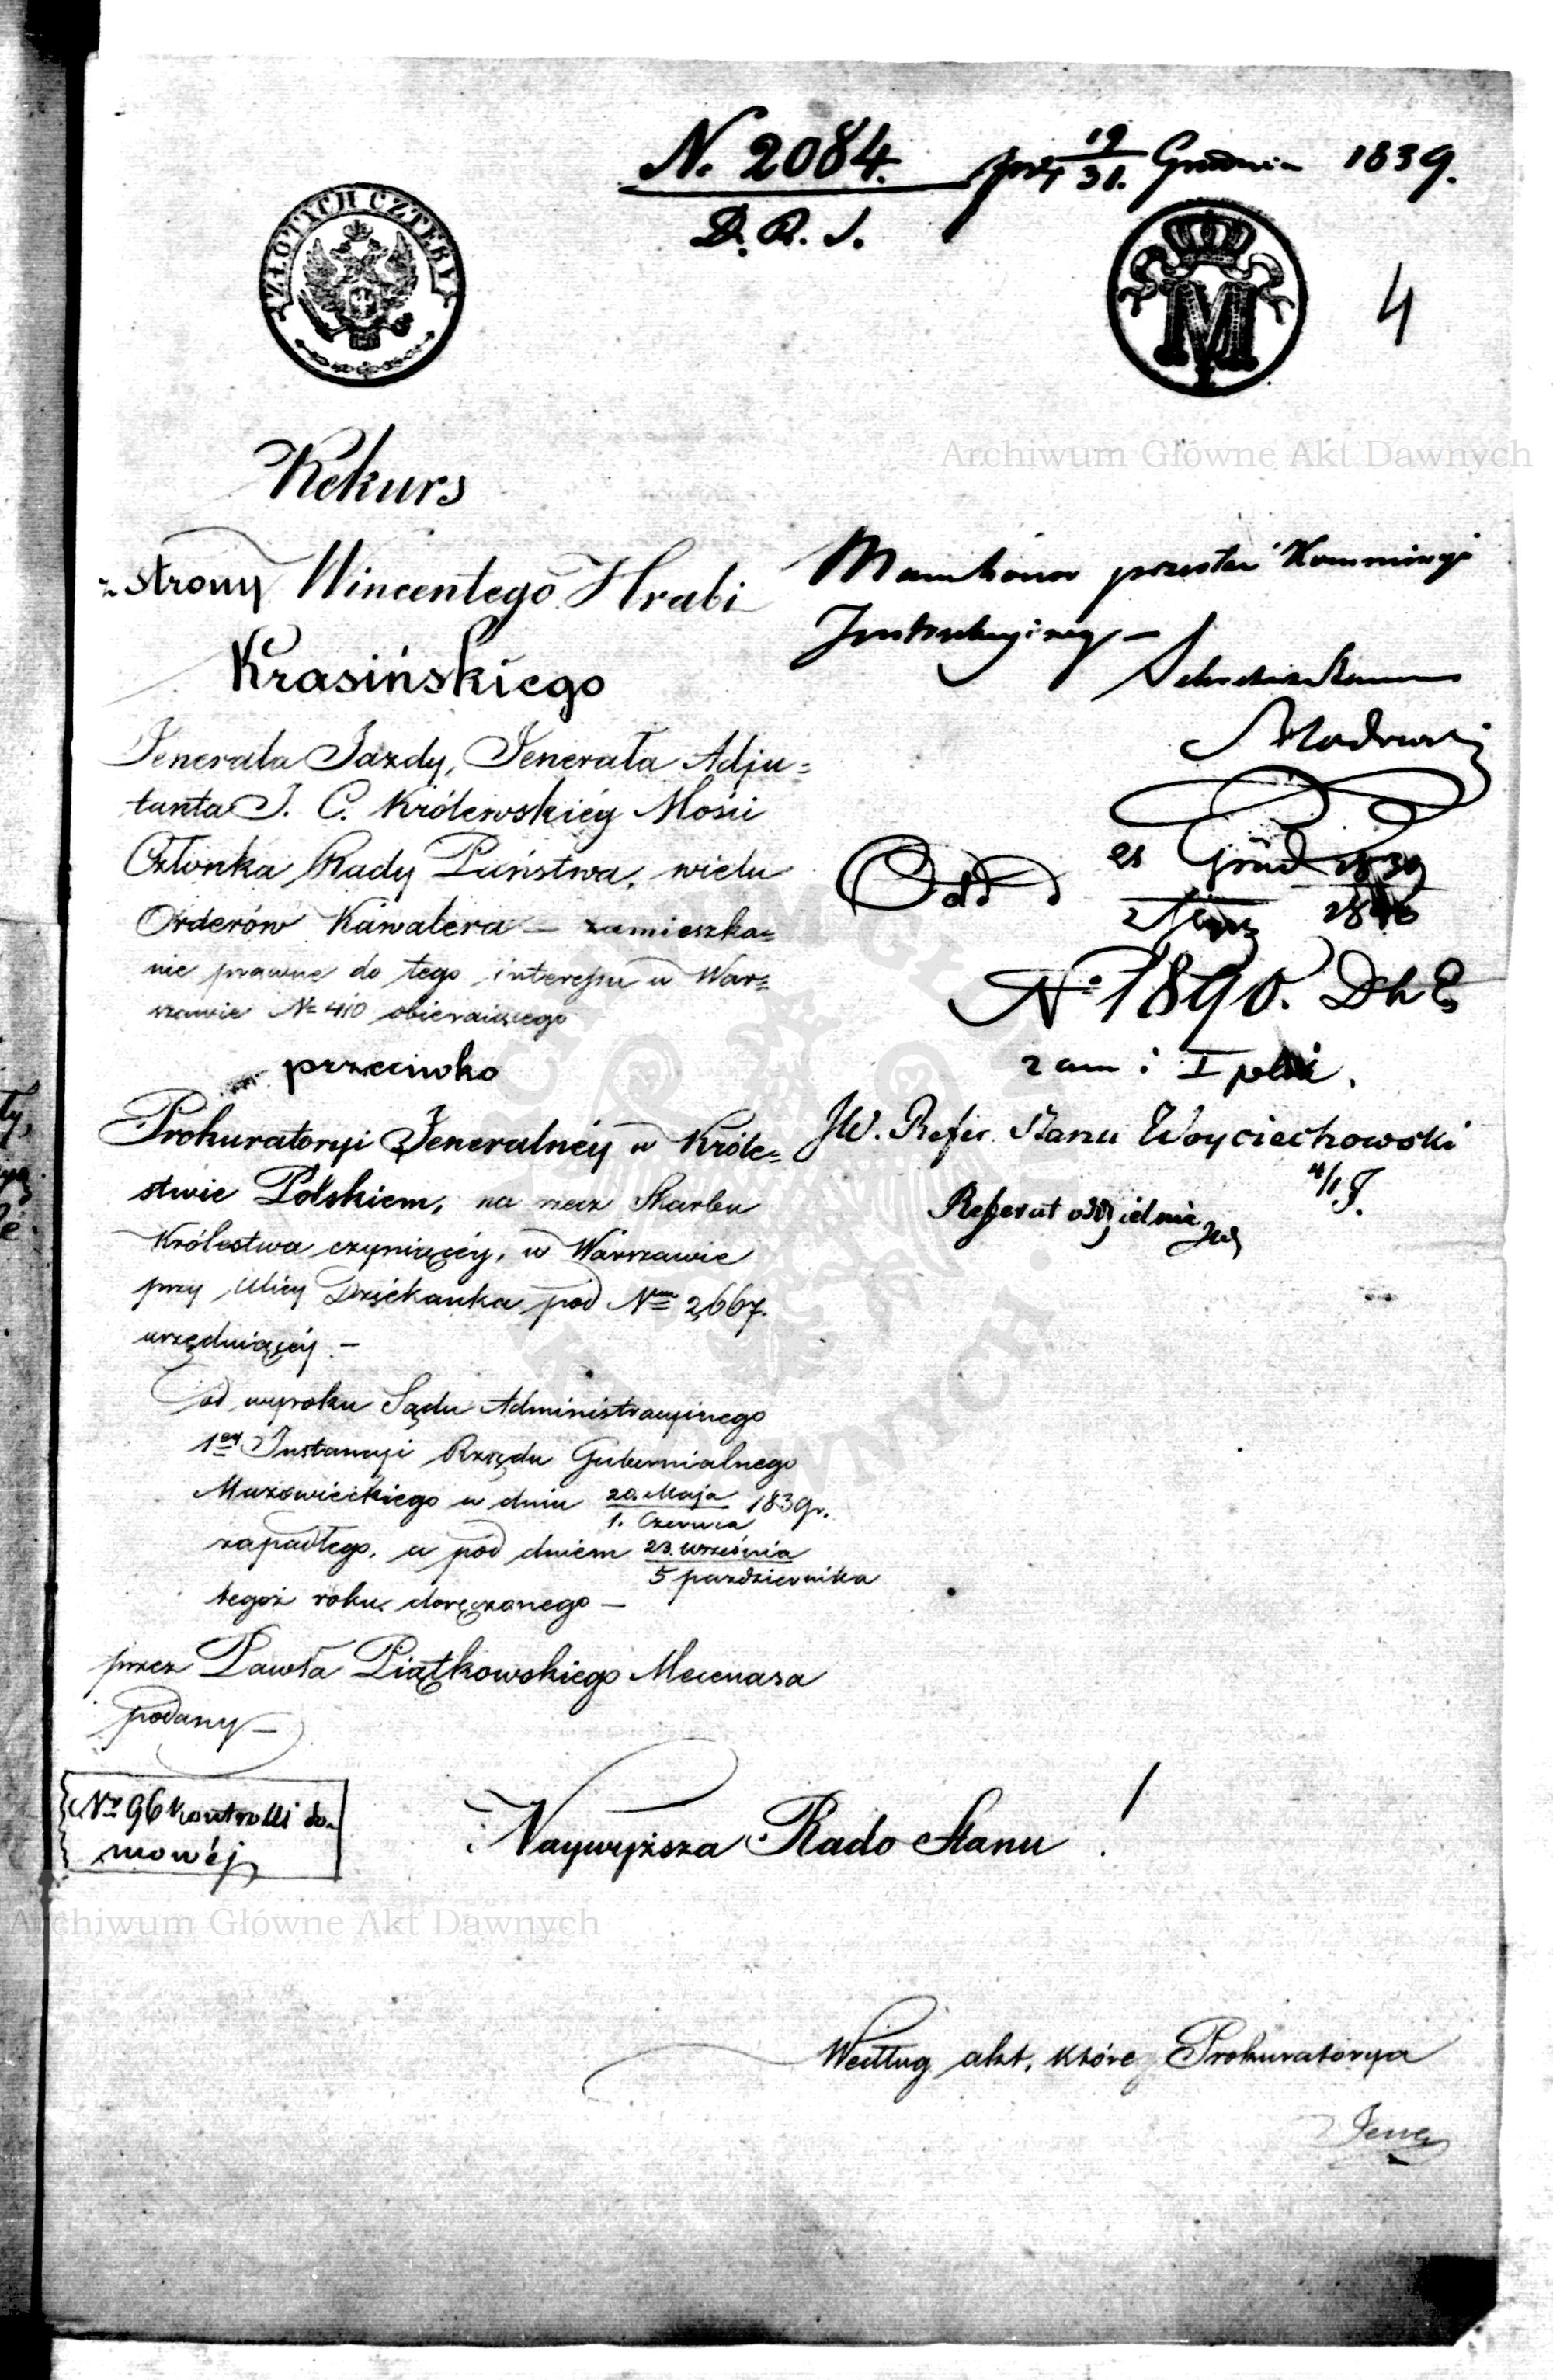 N. 2084. 19/31. Grudnia 1839.
D. R. S.
ZŁOTYCH CZTERY
M
4
Archiwum Główne Akt Dawnych
Rekurs
z strony Wincentego Hrabi
Krasińskiego
Jenerała Jazdy, Jenerała Adju=
tanta J. C. Królewskiéy Mości
Członka Rady Państwa, wielu
Orderów Kawalera – zamieszka=
nie prawne do tego interessu w War=
szawie No 410 obieraiącego
przeciwko
Prokuratoryi Jeneralnéy w Króle=
stwie Polskiem, na rzecz Skarbu
Królestwa czyniącéy, w Warszawie
przy Ulicy Dziékanka pod Nrm 2,667.
urzęduiącéy. –
od wyroku Sądu Administracyinego
1éy Instancyi Rządu Gubernialnego
Mazowieckiego w dniu 20. Maja / 1. Czerwca 1839r.
zapadłego, a pod dniem 23. września / 5 października
tegoż roku doręczonego –
przez Pawła Piątkowskiego Mecenasa
podany –
przesłać Kommissyi
Instrukcyiney –
Odd
Grud 1839
2 Stycz 1840
No 1890.
JW. Refer. Stanu Woyciechowski
4/1 J.
Referat oddzielnie
No 96 kontrolli do=
mowéj
Naywyższa Rado Stanu !
Archiwum Główne Akt Dawnych
Według akt, które Prokuratorya
Jene